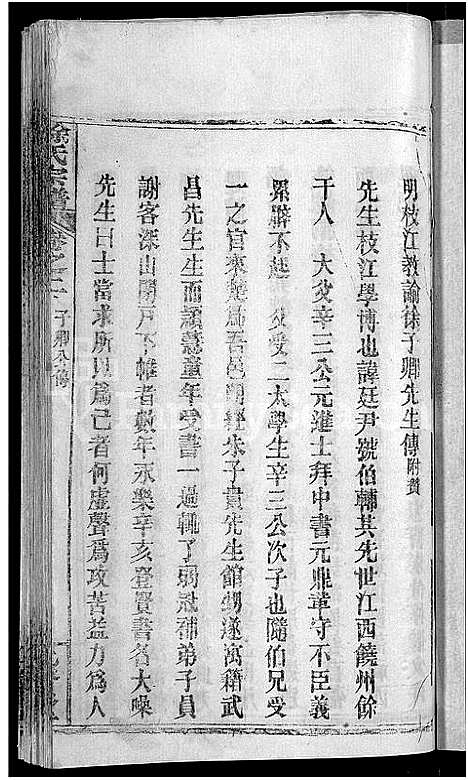 明枝江教諭徐子卿先生傳附贊
先生枝江學博也諱廷尹號伯輔其先世江西饒州餘
干人 大父辛三公元進士拜中書元鼎革守不臣義
累辟不起 父受二太學生辛三公次子也隨伯兄受
一之官來楚為吾邑明經朱子貴先生館甥遂寓籍武
昌先生生而穎慧童年受書一過輒了弱冠補弟子員
謝客深山閉戶下帷者數年永樂辛亥登賢書名大噪
先生曰士當求所以為己者何虛聲為攻苦益力為人
徐氏宗譜 卷之二 子卿公傳